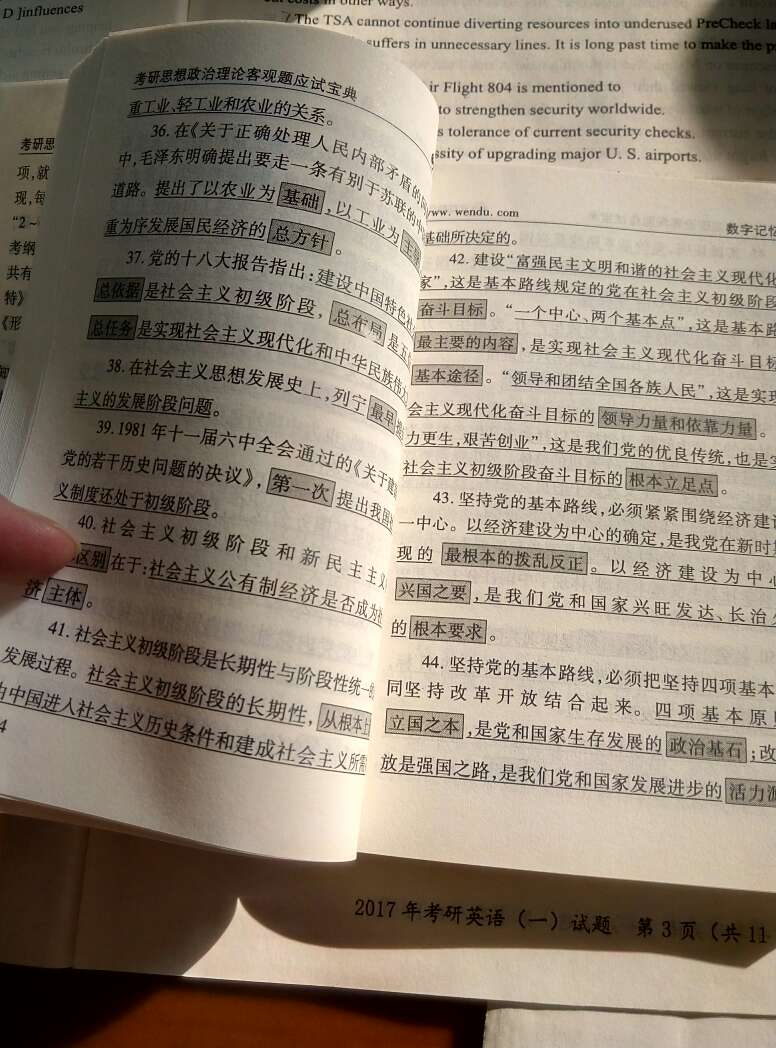 D ]influences
The TSA cannot continue diverting resources into underused PreCheck
suffers in unnecessary lines. It is long past time to make the
Flight 804 is mentioned to
to strengthen security worldwide.
tolerance of current security checks.
of upgrading major U. S. airports.
考研思
项,就
现,每
“2～
考纲
共有
特》
《形
考研思想政治理论客观题应试宝典
重工业、轻工业和农业的关系。
36. 在《关于正确处理人民内部矛盾的
中,毛泽东明确提出要走一条有别于苏联的中
道路。提出了以农业为 基础 ,以工业为 主
重为序发展国民经济的 总方针 。
37. 党的十八大报告指出:建设中国特色社
总依据是社会主义初级阶段, 总布局 是五
总任务是实现社会主义现代化和中华民族伟
38. 在社会主义思想发展史上,列宁 最早
主义的发展阶段问题。
39. 1981 年十一届六中全会通过的《关于建
党的若干历史问题的决议》, 第一次 提出我国
义制度还处于初级阶段。
40. 社会主义初级阶段和新民主主义
区别 在于:社会主义公有制经济是否成为社
济 主体 。
41. 社会主义初级阶段是长期性与阶段性统一的
发展过程。社会主义初级阶段的长期性, 从根本上
由中国进入社会主义历史条件和建成社会主义所需
4
www. wendu. com
数字记忆
基础所决定的。
42. 建设“富强民主文明和谐的社会主义现代化
家”,这是基本路线规定的党在社会主义初级阶段
奋斗目标 。“一个中心、两个基本点”,这是基本路
最主要的内容 ,是实现社会主义现代化奋斗目标
基本途径 。“领导和团结全国各族人民”,这是实现
会主义现代化奋斗目标的 领导力量和依靠力量 。
力更生,艰苦创业”,这是我们党的优良传统,也是实
社会主义初级阶段奋斗目标的 根本立足点 。
43. 坚持党的基本路线,必须紧紧围绕经济建设
一中心。以经济建设为中心的确定,是我党在新时期
现的 最根本的拨乱反正 。以经济建设为中心
兴国之要 ,是我们党和国家兴旺发达、长治久
的 根本要求 。
44. 坚持党的基本路线,必须把坚持四项基本
同坚持改革开放结合起来。四项基本原则
立国之本 ,是党和国家生存发展的 政治基石 ;改
放是强国之路,是我们党和国家发展进步的 活力源
2017 年考研英语（一）试题 第 3 页（共 11